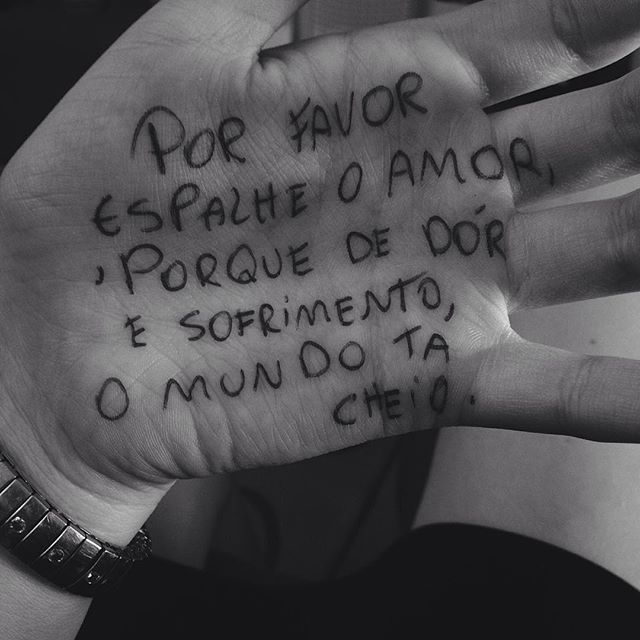 POR FAVOR
ESPALHE O AMOR,
, PORQUE DE DÓR
E SOFRIMENTO,
O MUNDO TA
CHEIO.